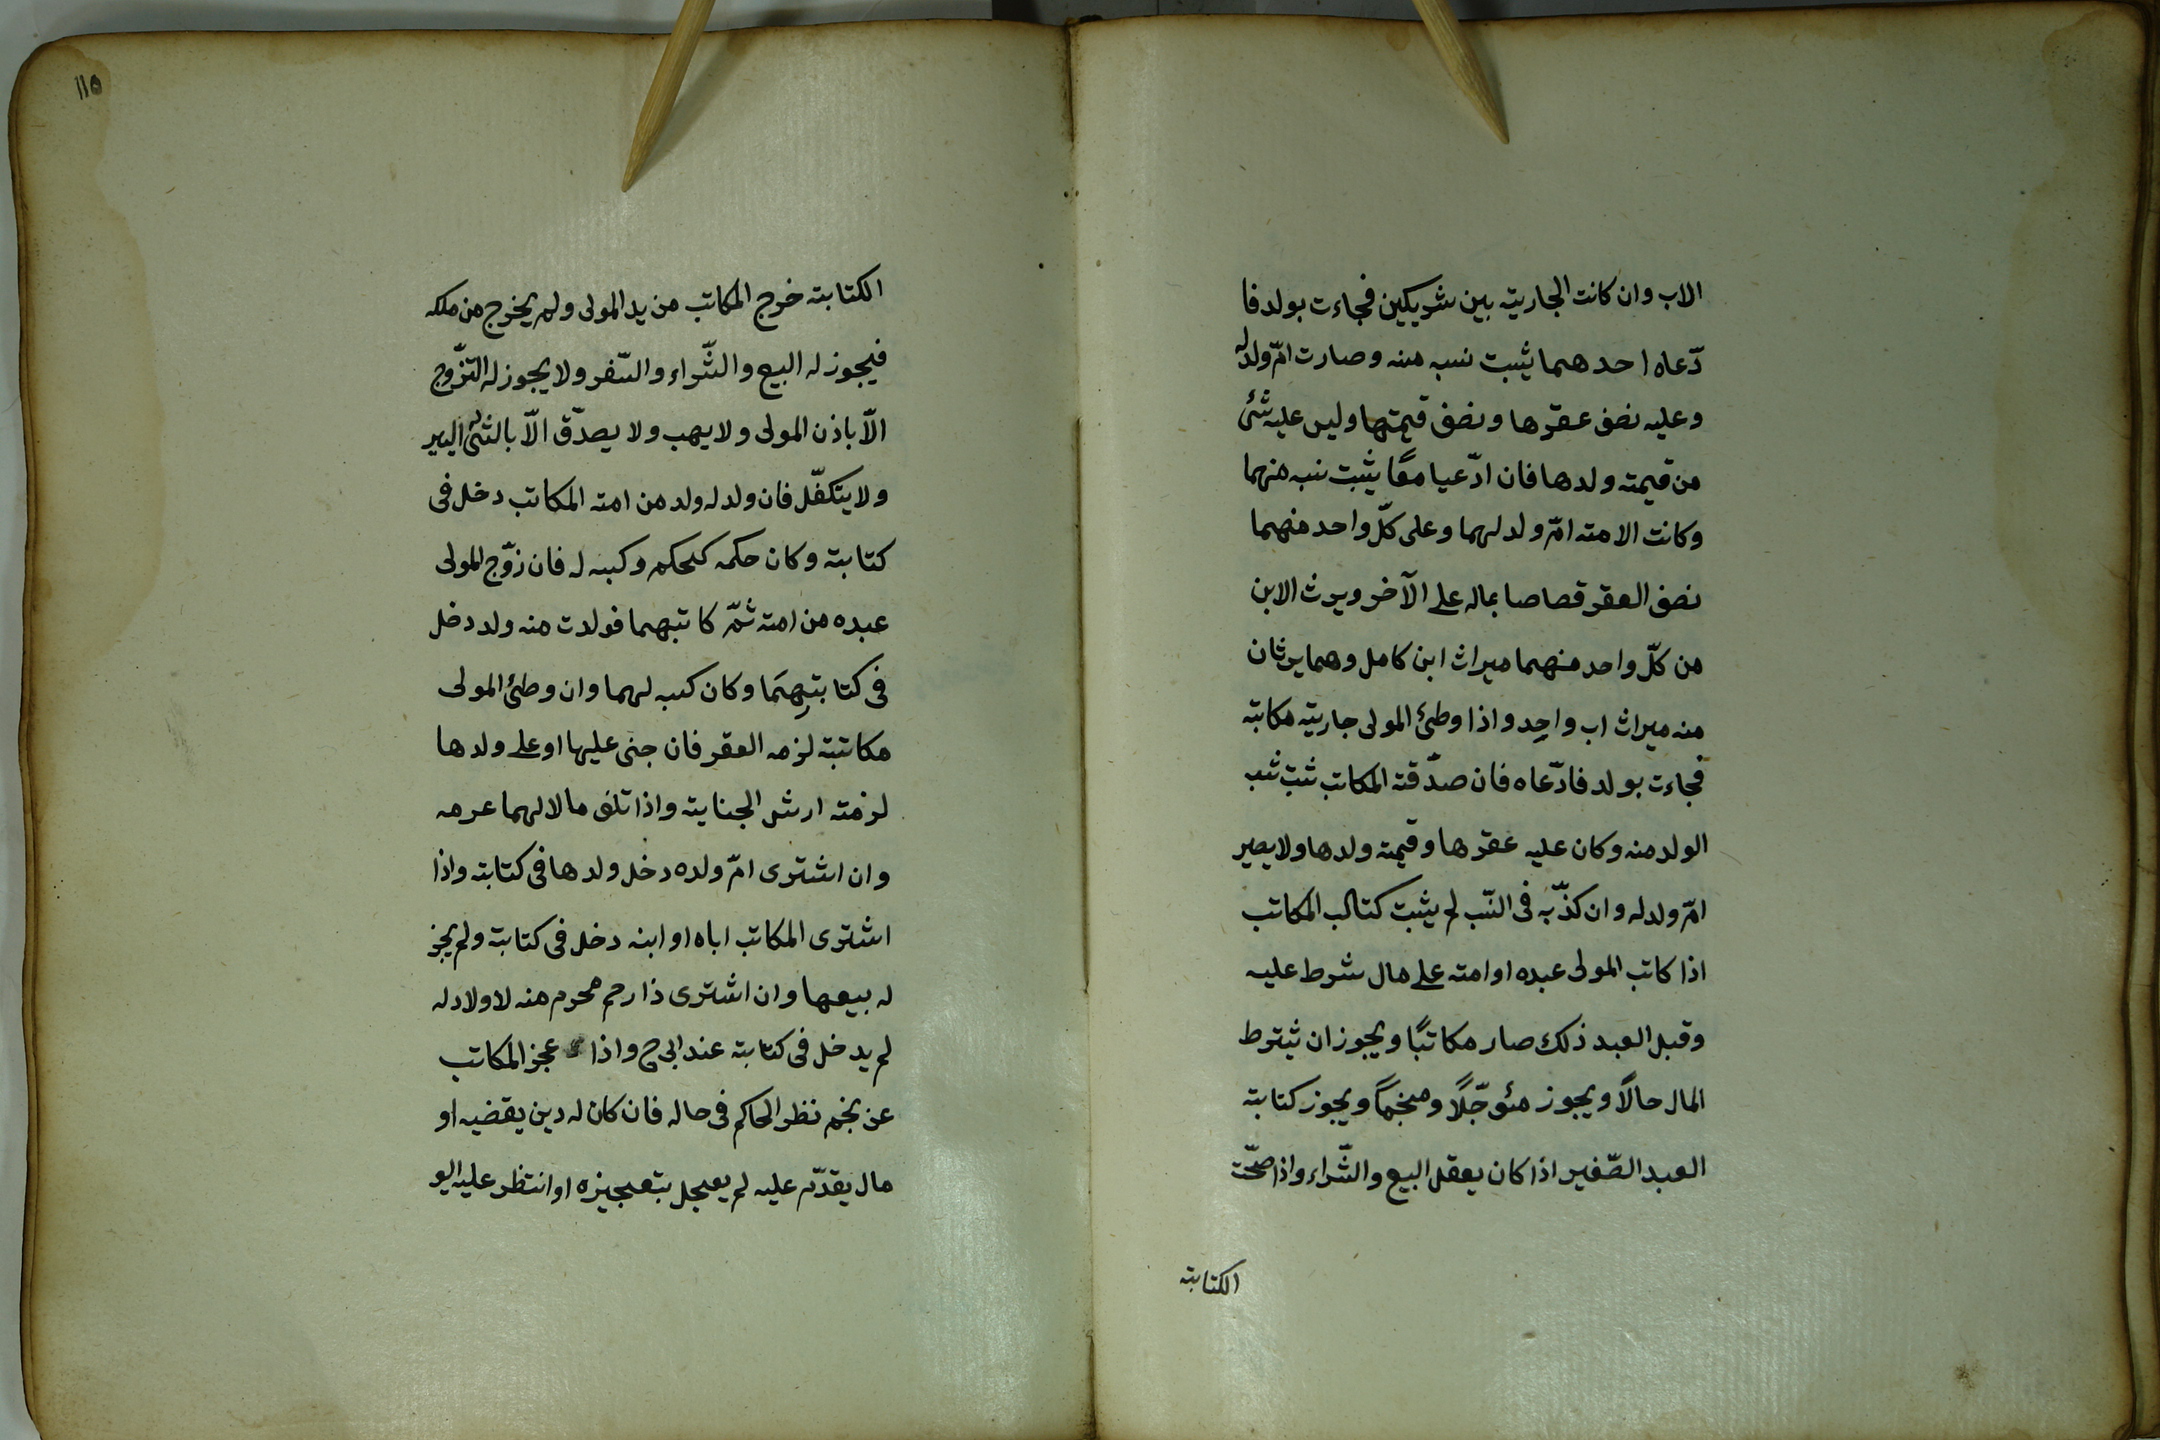 الاب وان كانت الجاريته بين شريكين فجاءت بولد فا
دّعاه احدهما يثبت نسبه منه وصارت امّ ولد له
وعليه نصف عقرها ونصف قيمتها وليس عليه شئ
من قيمته ولدها فان ادّعيا معًا يثبت نسبه منهما
وكانت الامته امّ ولد لهما وعلى كلّ واحد منهما
نصف العقر قصاصا بماله على الآخر ويرث الابن
من كلّ واحد منهما ميراث ابن كامل وهما يرثان
منه ميراث اب واحِد واذا وطئ المولى جاريته مكاتبه
فجاءت بولد فادّعاه فان صدّقته المكاتب ثبت نسب
الولد منه وكان عليه عقرها وقيمته ولدها ولا يصير
امّ ولد له وان كذّبه فى النّسب لم يثبت كتاب المكاتب
اذا كاتب المولى عبده او امته على مال شرط عليه
وقبل العبد ذلك صار مكاتبًا ويجوز ان يثترط
المال حالًا ويجوز مئوجّلًا ومنجّمًا ويجوز كتابته
العبد الصّغير اذا كان يعقل البيع والشّراء واذا صحّت
الكتابته
١١٥
الكتابته خرج المكاتب من يد المولى ولم يخرج من ملكه
فيجوز له البيع والشّراء والسّفر ولا يجوز له التزّوج
الاّ باذن المولى ولا يهب ولا يصدّق الاّ بالشئ اليسير
ولا يتكفّل فان ولد له ولد من امته المكاتب دخل فى
كتابته وكان حكمه كحكم وكسبه له فان زوّج المولى
عبده من امته ثمّ كاتبهما فولدت منه ولد دخل
فى كتابتهِمَا وكان كسبه لهما وان وطئ المولى
مكاتبته لزمه العقر فان جنى عليها او على ولدها
لزمته ارش الجنايته واذا تلف مالا لهما عرمه
وان اشترى امّ ولده دخل ولدها فى كتابته واذا
اشترى المكاتب اباه او ابنه دخل فى كتابته ولم يجز
له بيعها وان اشترى ذا رحم محرم منه لا ولاد له
لم يدخل فى كتابته عند ابى ح واذا عجز المكاتب
عن نجم نظر الحاكم فى حاله فان كان له دين يقضيه او
مال يقدّم عليه لم يعجل بتعجيزه او انتظر عليه اليو